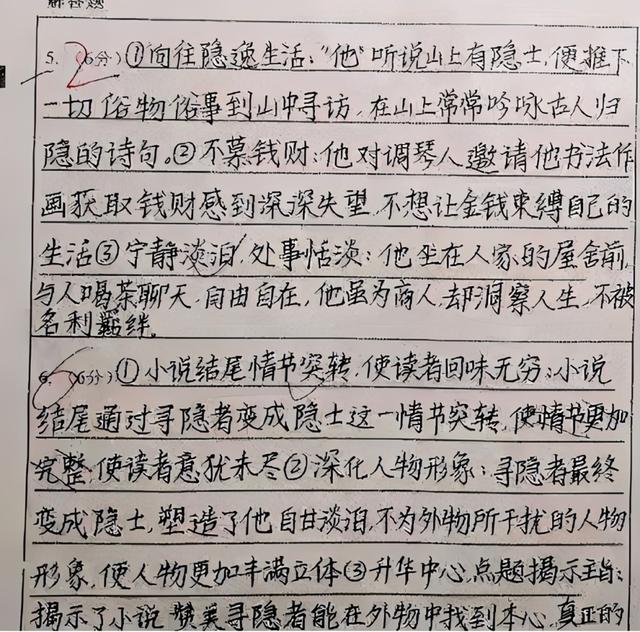 解答题
5. 2 (6分)①向往隐逸生活:“他”听说山上有隐士,便推下
一切俗物俗事到山中寻访,在山上常常吟咏古人归
隐的诗句。②不慕钱财:他对调琴人邀请他书法作
画获取钱财感到深深失望,不想让金钱束缚自己的
生活③宁静淡泊,处事恬淡:他坐在人家的屋舍前,
与人喝茶聊天,自由自在,他虽为商人,却洞察人生,不被
名利羁绊。
6. (6分)①小说结尾情节突转,使读者回味无穷:小说
结尾通过寻隐者变成隐士这一情节突转,使情节更加
完整,使读者意犹未尽②深化人物形象:寻隐者最终
变成隐士,塑造了他自甘淡泊,不为外物所干扰的人物
形象,使人物更加丰满立体③升华中心,点题揭示主旨:
揭示了小说赞美寻隐者能在外物中找到本心,真正的